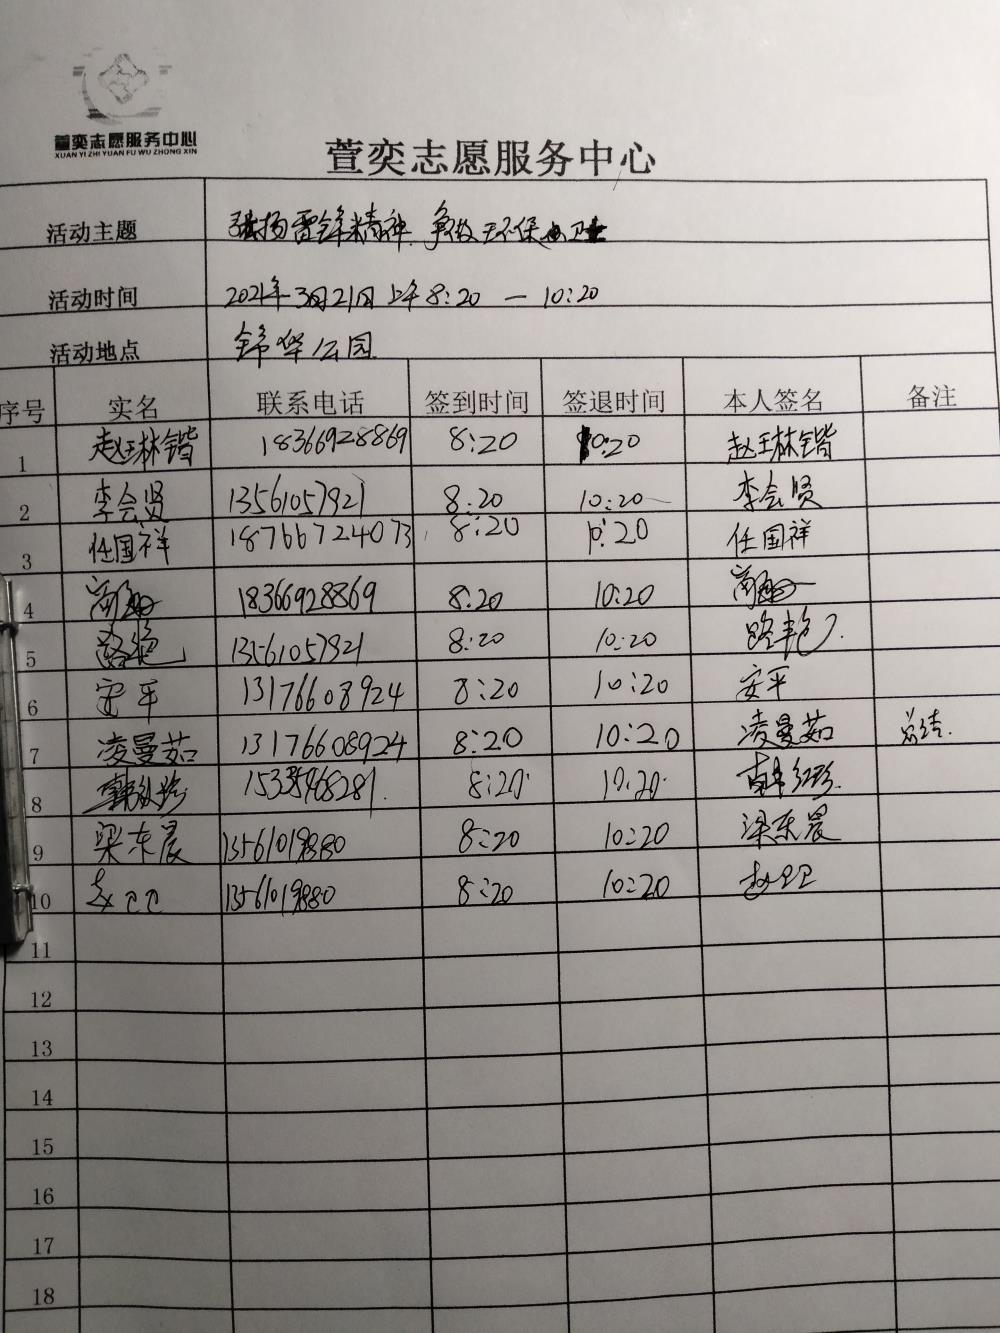 萱奕志愿服务中心
XUAN YI ZHI YUAN FU WU ZHONG XIN
萱奕志愿服务中心
活动主题 弘扬雷锋精神 争做环保卫士
活动时间 2021年3月21日上午8:20 — 10:20
活动地点 锦华公园
序号 实名 联系电话 签到时间 签退时间 本人签名 备注
1 赵珏林锴 18366928869 8:20 10:20 赵珏林锴
2 李会贤 13561057921 8:20 10:20 李会贤
3 任国祥 18766724073 8:20 10:20 任国祥
4 18366928869 8:20 10:20
5 路艳 13561057921 8:20 10:20 路艳
6 安平 13176608924 8:20 10:20 安平
7 凌曼茹 13176608924 8:20 10:20 凌曼茹 总结
8 韩红珍 15335468281 8:20 10:20 韩红珍
9 梁东晨 13561019880 8:20 10:20 梁东晨
10 赵卫卫 13561019880 8:20 10:20 赵卫卫
11
12
13
14
15
16
17
18